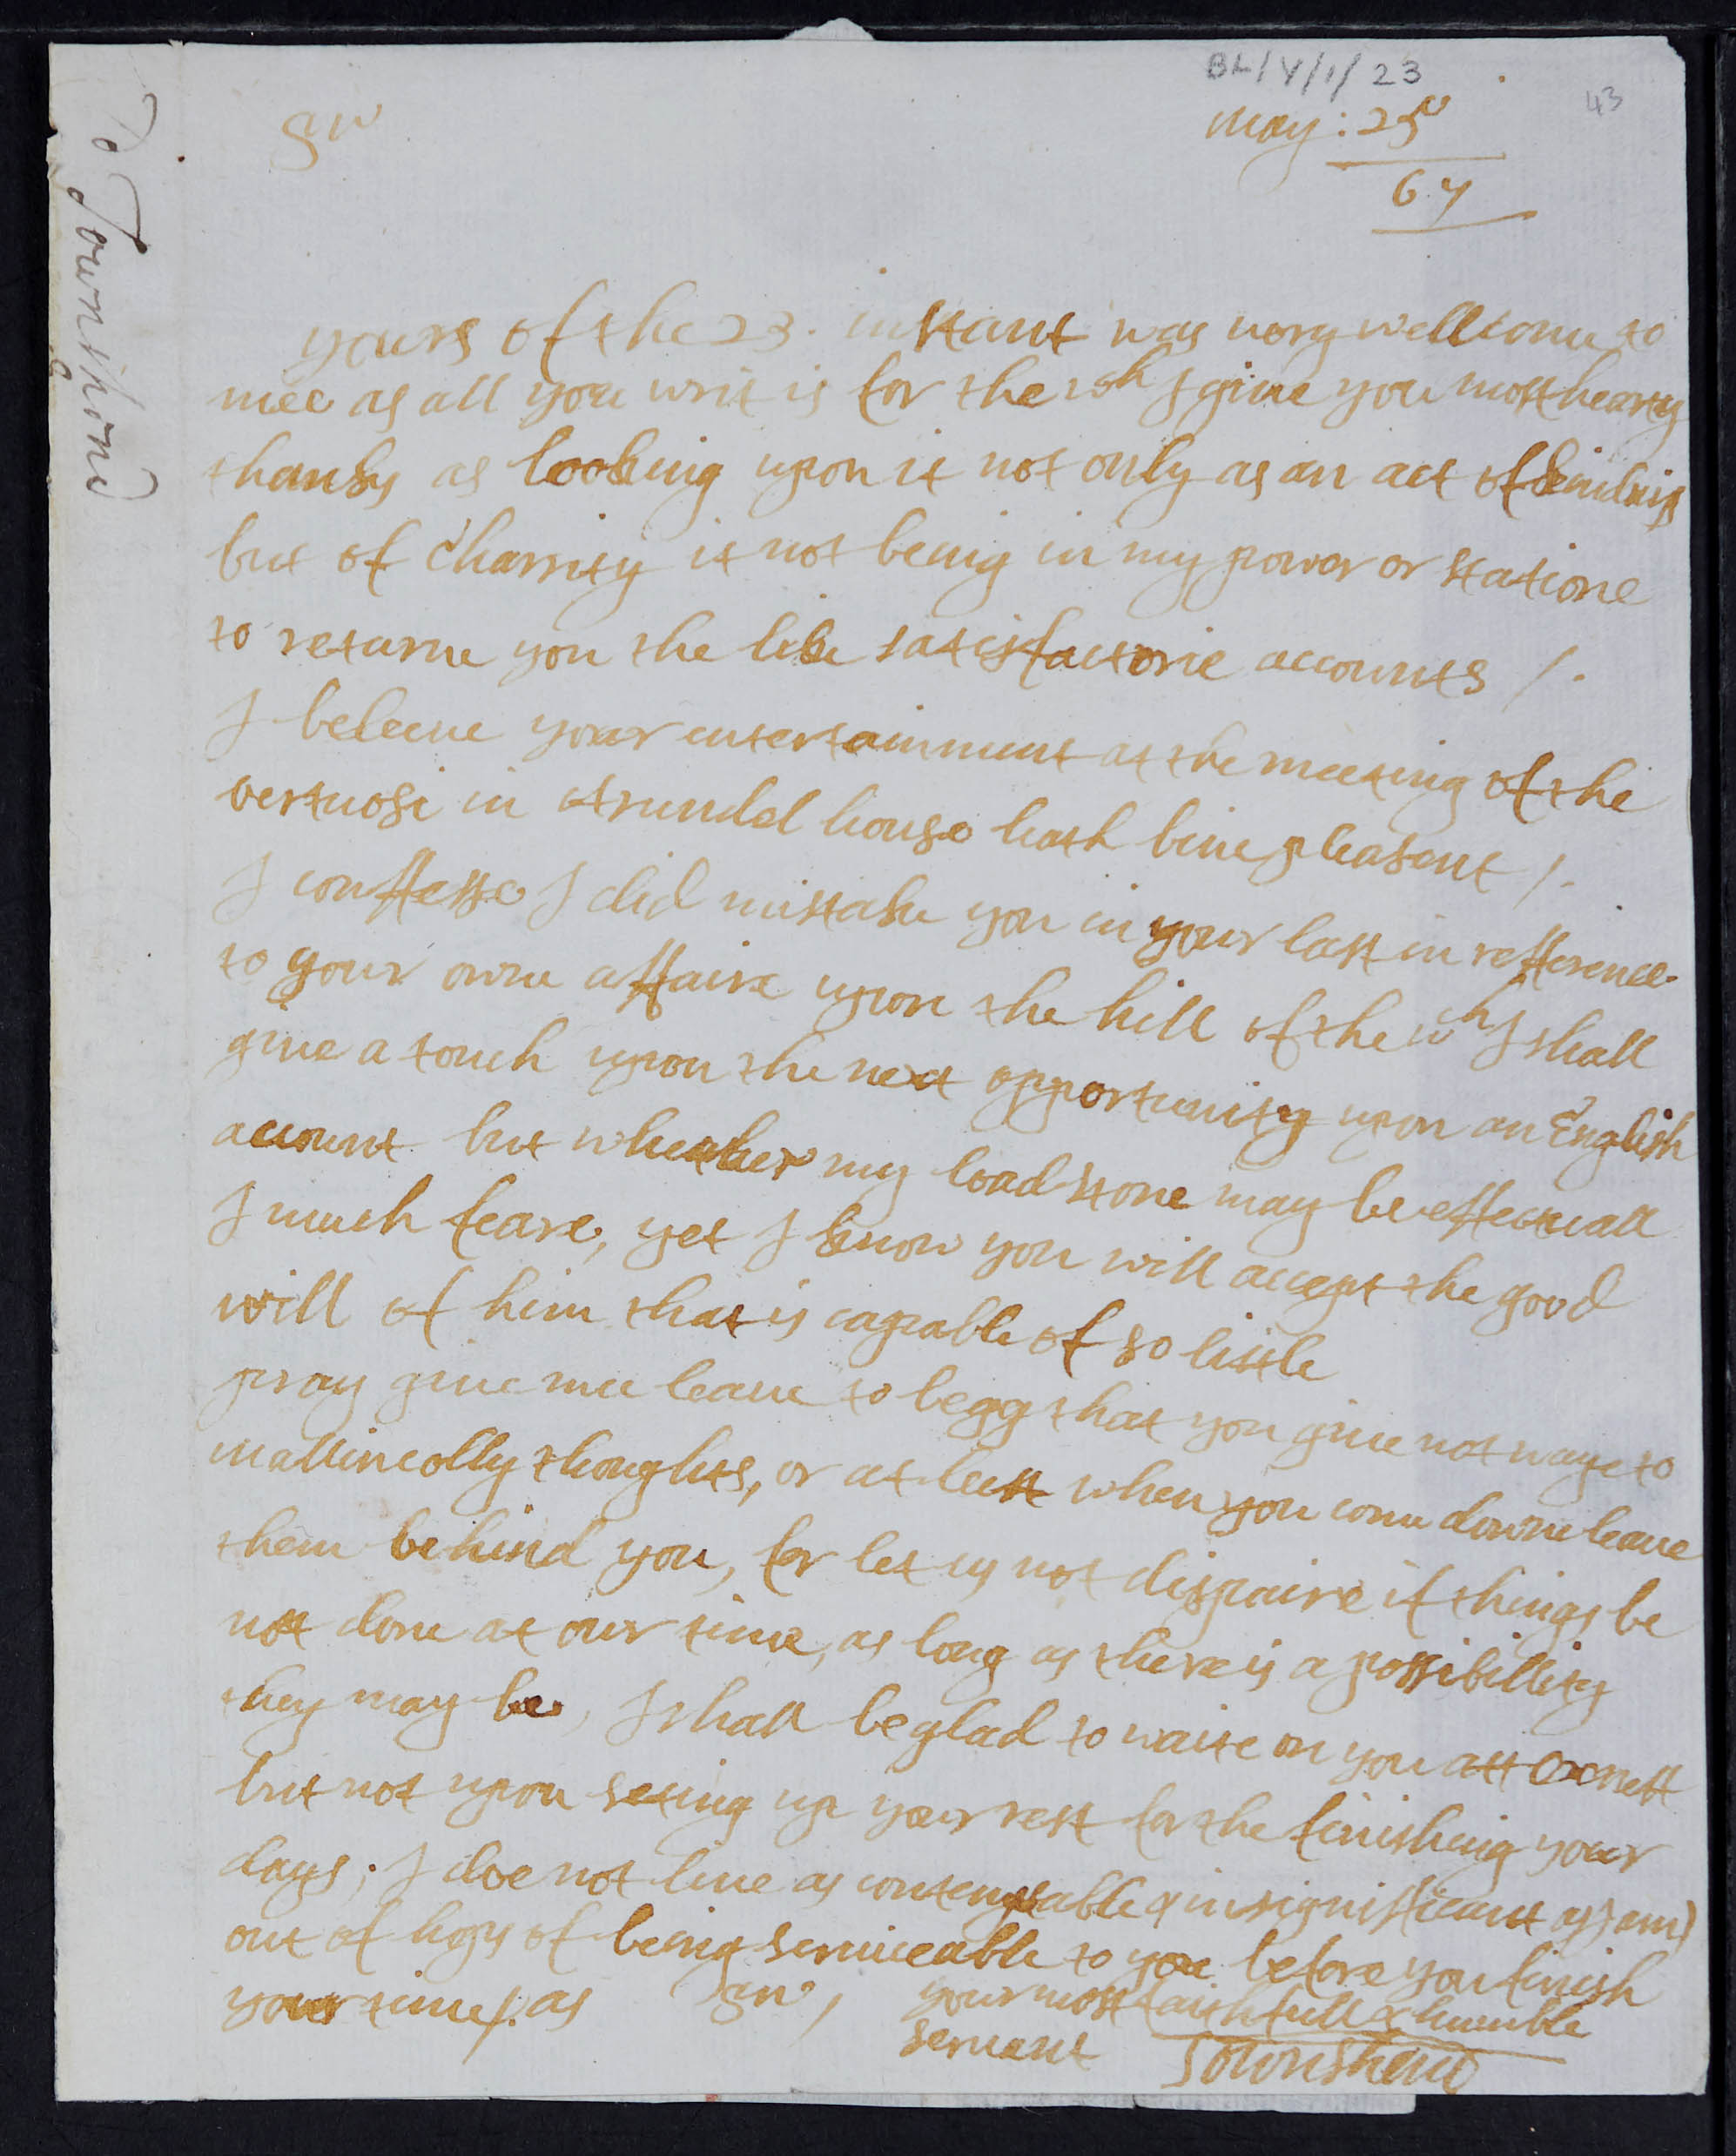 BL/Y/1/23
43
Sr
May: 25
67
Ld Townshend
yours of the 23. instant was very wellcome to
mee as all you writ is for the wch I give you most hearty
thanks as looking upon it not only as an act of kindnis
but of charrity it not being in my power or statione
to returne you the like satisfactorie accounts /.
I beleeue your entertainment at the meeting of the
vertuosi in Arundel house hath bine pleasent /.
I conffesse I did mistake you in your last in refference
to your owne affaire upon the hill of the wch I shall
giue a touch upon the next opportunity upon an English
account but wheather my load-stone may be effectuall
I much feare, yet I know you will accept the good
will of him that is capable of so little
pray giue mee leaue to begg that you giue not waye to
mallincolly thoughts, or at leest when you come downe leaue
them behind you, for let us not dispaire if things be
not done at our time, as long as there is a possibillity
they may be, I shall be glad to waite on you att Oxnett
but not upon seting up your rest for the finishing your
days; I doe not liue as contemptable & insignifficant as I am)
out of hops of being seruiceable to you before you finish
your time/. as Sr, your most faithfull & humble
seruant Townshend